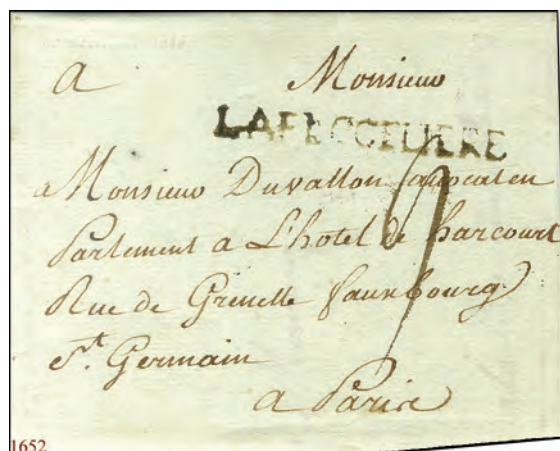 a Monsieur
LAFLOCELIERE
a Monsieur Duvallon avocat en
Parlement a L'hotel de harcourt
Rue de Grenelle fauxbourg
St. Germain
a Paris
9
1652